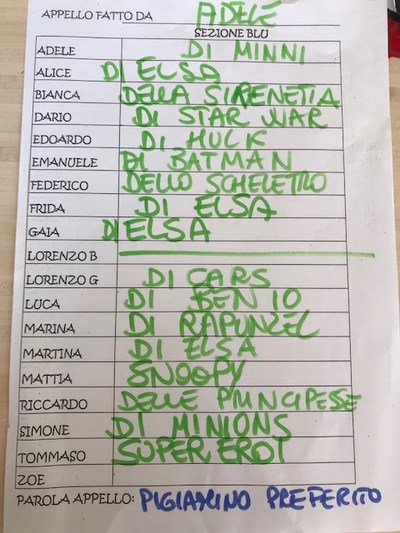 APPELLO FATTO DA ADELE
SEZIONE BLU
ADELE DI MINNI
ALICE DI ELSA
BIANCA DELLA SIRENETTA
DARIO DI STAR WAR
EDOARDO DI HULK
EMANUELE DI BATMAN
FEDERICO DELLO SCHELETRO
FRIDA DI ELSA
GAIA DI ELSA
LORENZO B
LORENZO G DI CARS
LUCA DI BEN 10
MARINA DI RAPUNZEL
MARTINA DI ELSA
MATTIA SNOOPY
RICCARDO DELLE PRINCIPESSE
SIMONE DI MINIONS
TOMMASO SUPER EROI
ZOE
PAROLA APPELLO: PIGIAMINO PREFERITO